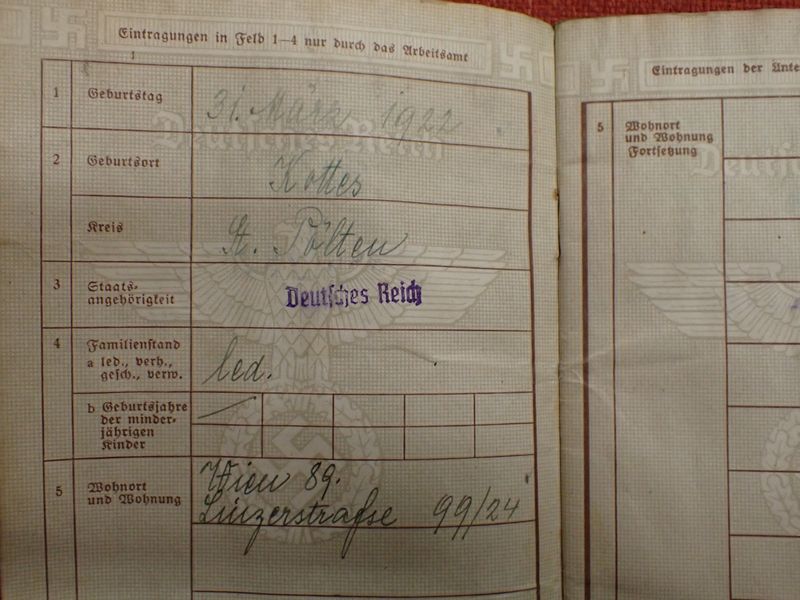 Eintragungen in Feld 1–4 nur durch das Arbeitsamt
1 Geburtstag 31. März 1922
Deutsches Reich
2 Geburtsort Kottes
Kreis St. Pölten
3 Staats-
angehörigkeit Deutsches Reich
4 Familienstand
a led., verh.,
gesch., verw. led.
b Geburtsjahre
der minder-
jährigen
Kinder
5 Wohnort
und Wohnung Wien 89.
Linzerstrasse 99/24
Eintragungen der
5 Wohnort
und Wohnung
Fortsetzung